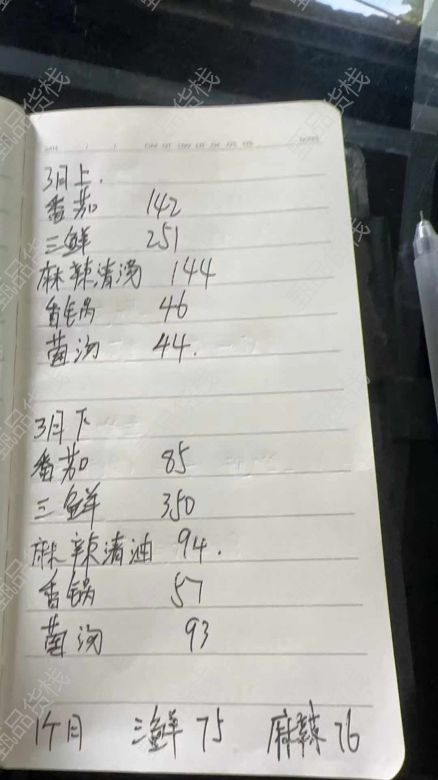 3月上.
番茄 142
三鲜 251
麻辣清汤 144
香锅 46
菌汤 44.
3月下
番茄 85
三鲜 350
麻辣清油 94.
香锅 57
菌汤 93
1个月 三鲜 75 麻辣 76
甄品货栈